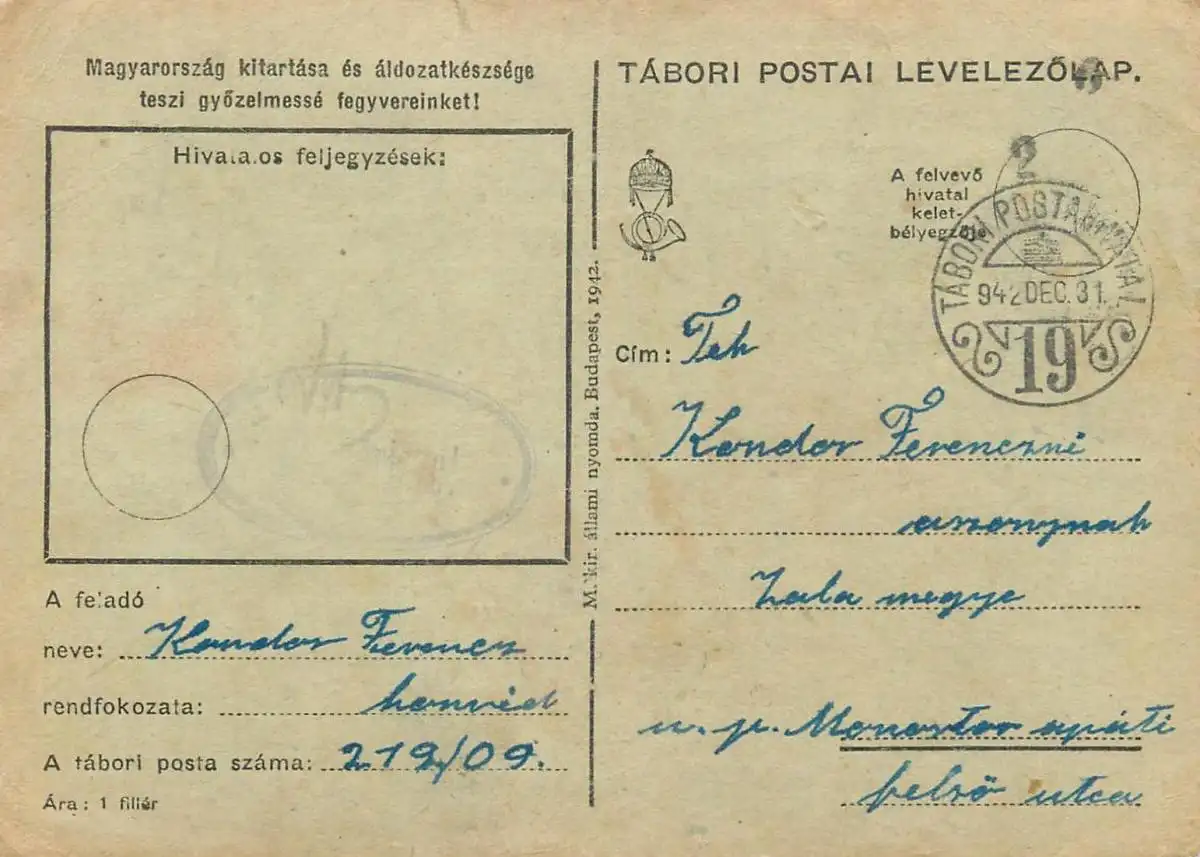 Magyarország kitartása és áldozatkészsége
teszi győzelmessé fegyvereinket!
Hivatalos feljegyzések:
A feladó
neve: Kondor Ferencz
rendfokozata: honvéd
A tábori posta száma: 219/09.
Ára: 1 fillér
M. kir. állami nyomda, Budapest, 1942.
TÁBORI POSTAI LEVELEZŐLAP.
A felvevő
hivatal
kelet-
bélyegzője
2
TÁBORI POSTAHIVATAL
942 DEC. 31.
19
Cím: Teh
Kondor Ferenczni
aszonynak
Zala megye
u. p. Monostor apáti
felső utca